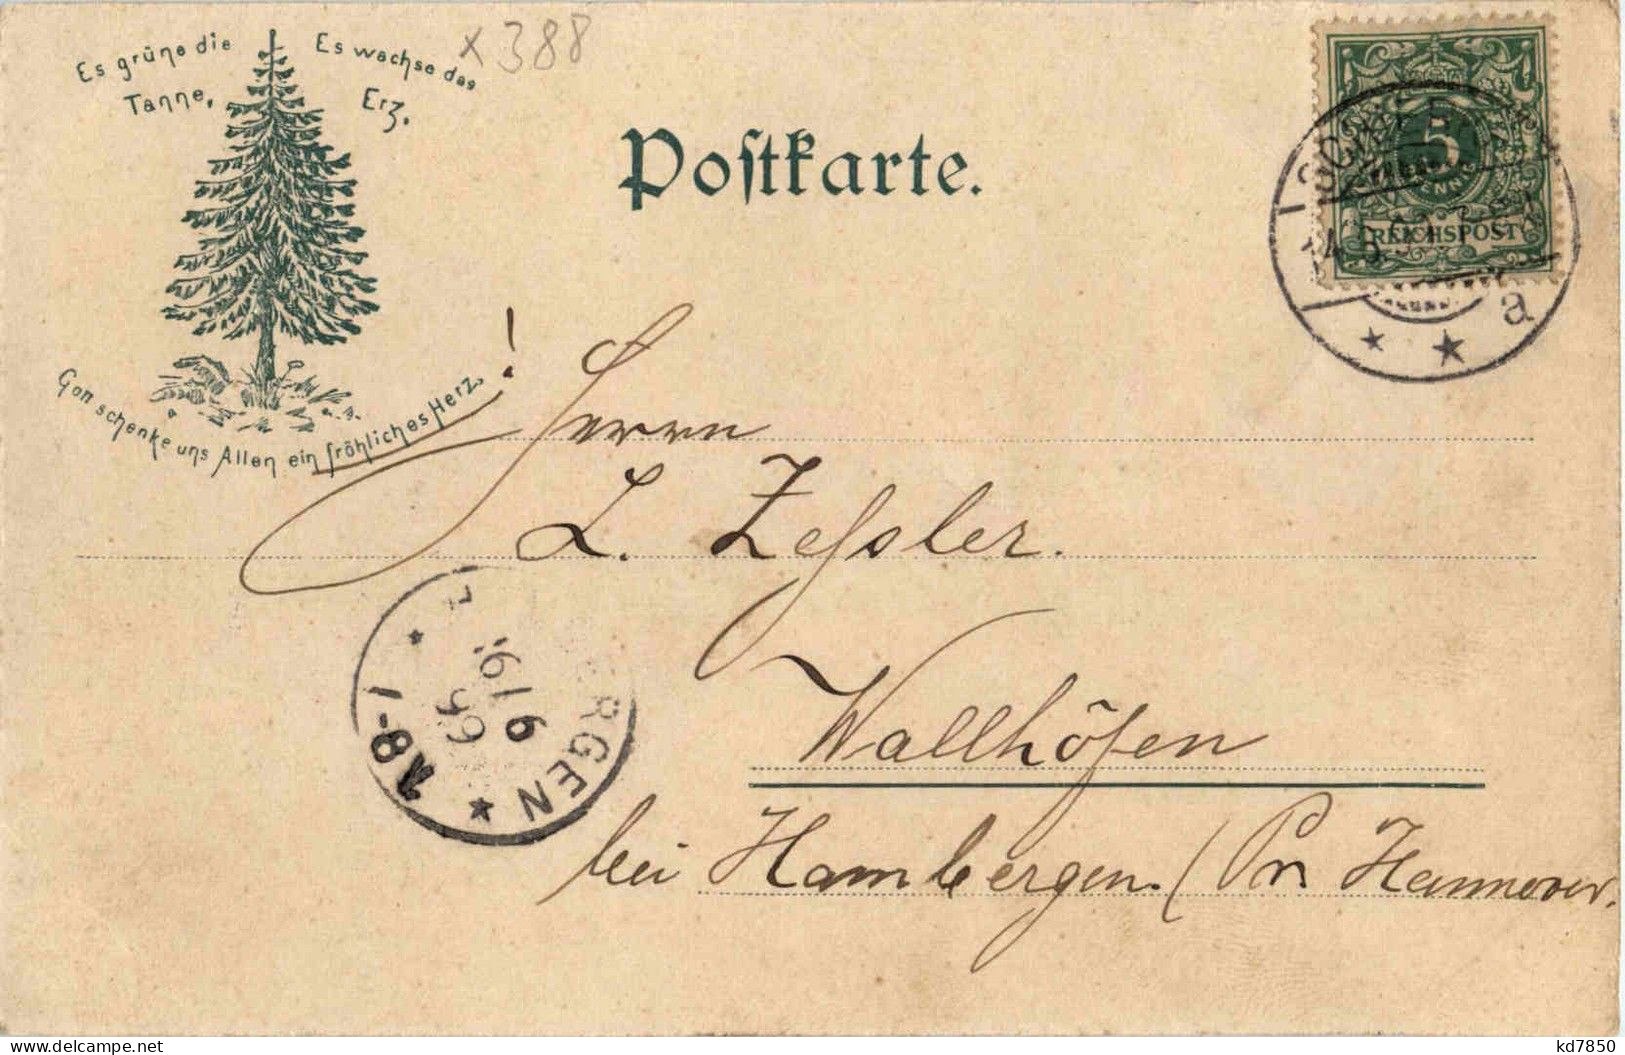 Es grüne die
Tanne,
Es wachse das
Erz.
Gott schenke uns Allen ein fröhliches Herz!
x 388
Postkarte.
5
REICHSPOST
a
Herrn
L. Zessler.
Wallhöfen
bei Hambergen. (Pr. Hannover.
RGEN
9/9
99
1-8
kd7850